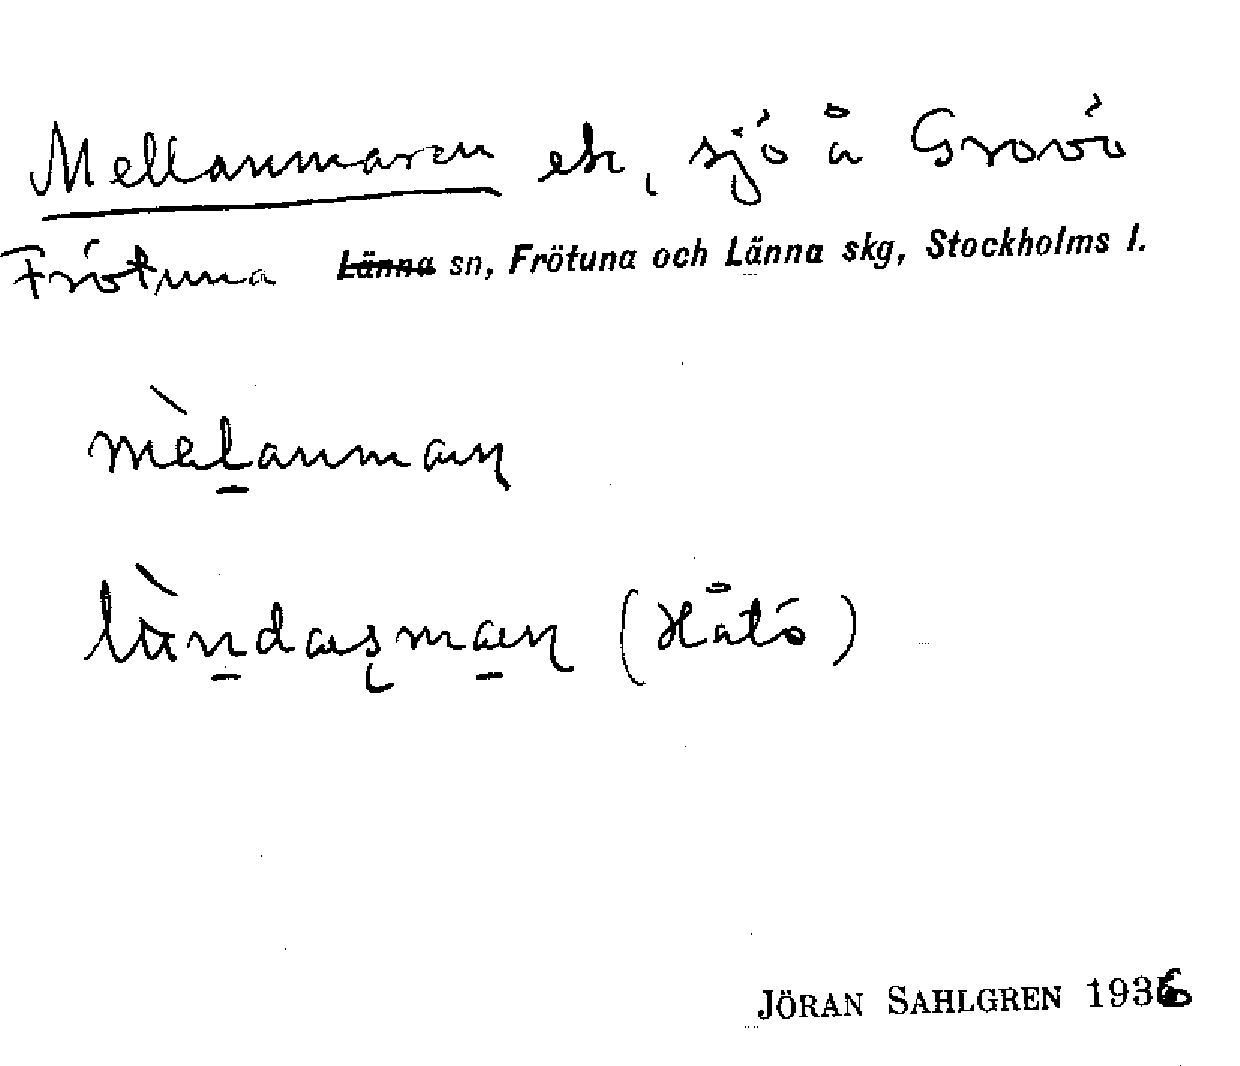 Mellanmaren ek, sjö å Grovö
Frötuna Länna sn, Frötuna och Länna skg, Stockholms l.
mèlanmaɳ
lùndaʂmaɳ (Håtö)
JÖRAN SAHLGREN 1936